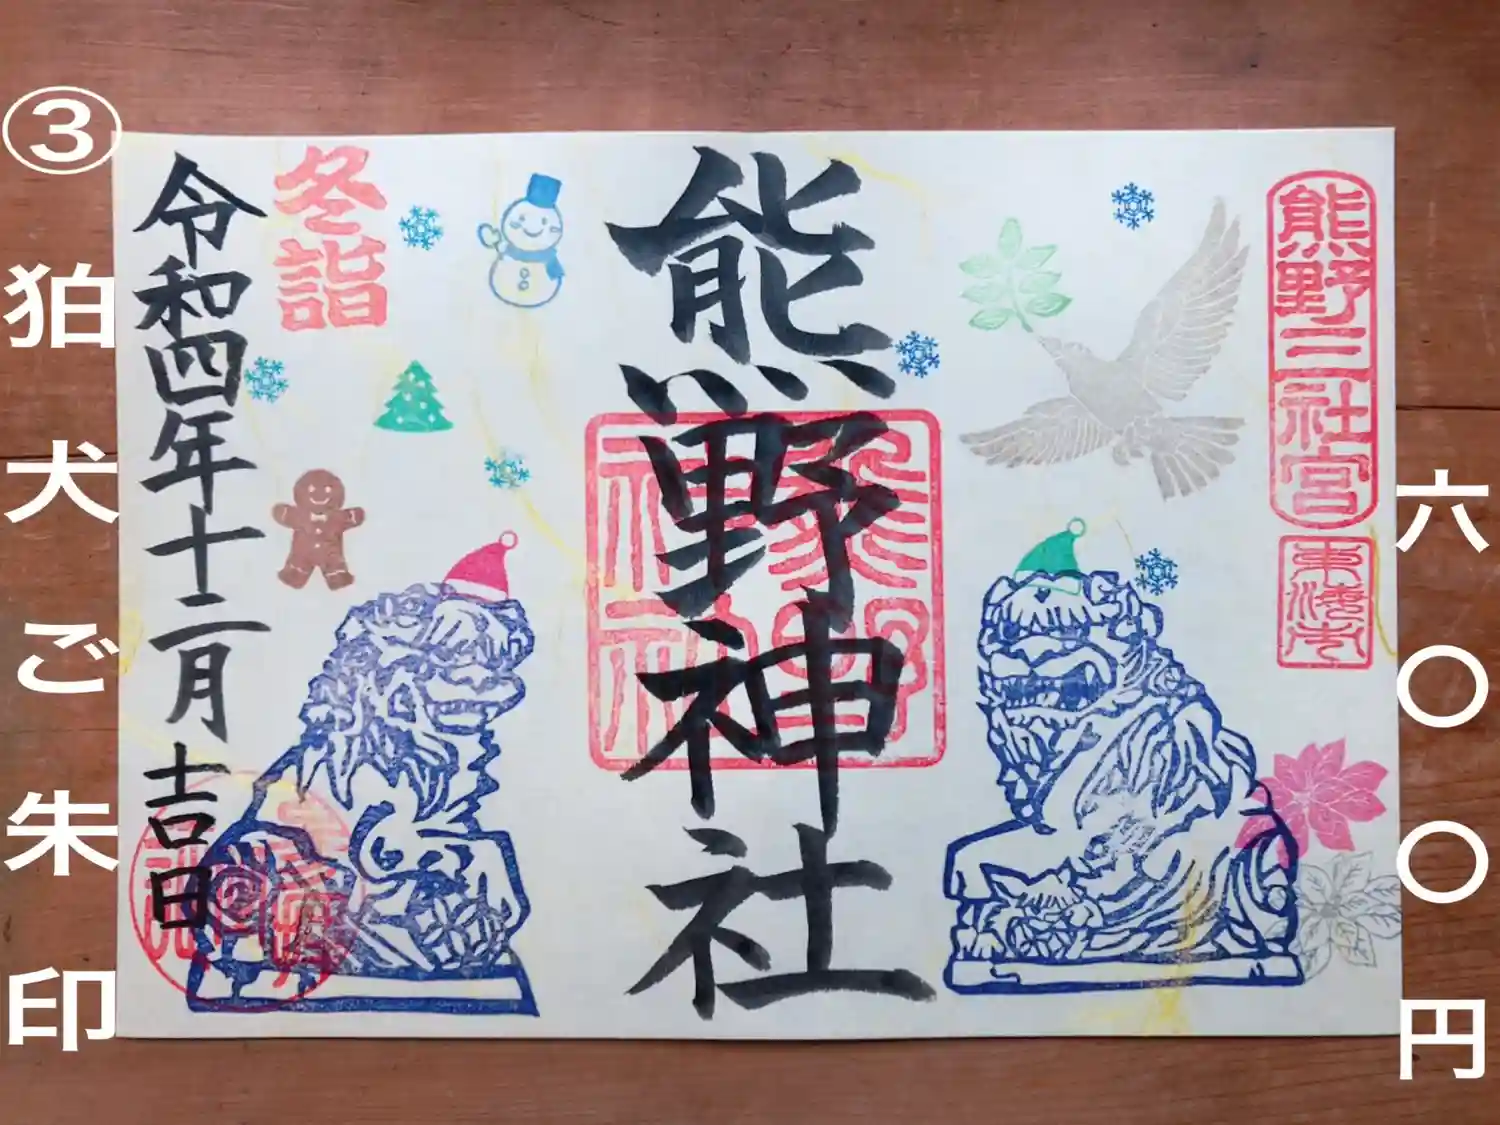 ③狛犬ご朱印
六〇〇円
熊野三社宮
東海市
熊野神社
熊野神社
冬詣
令和四年十二月吉日